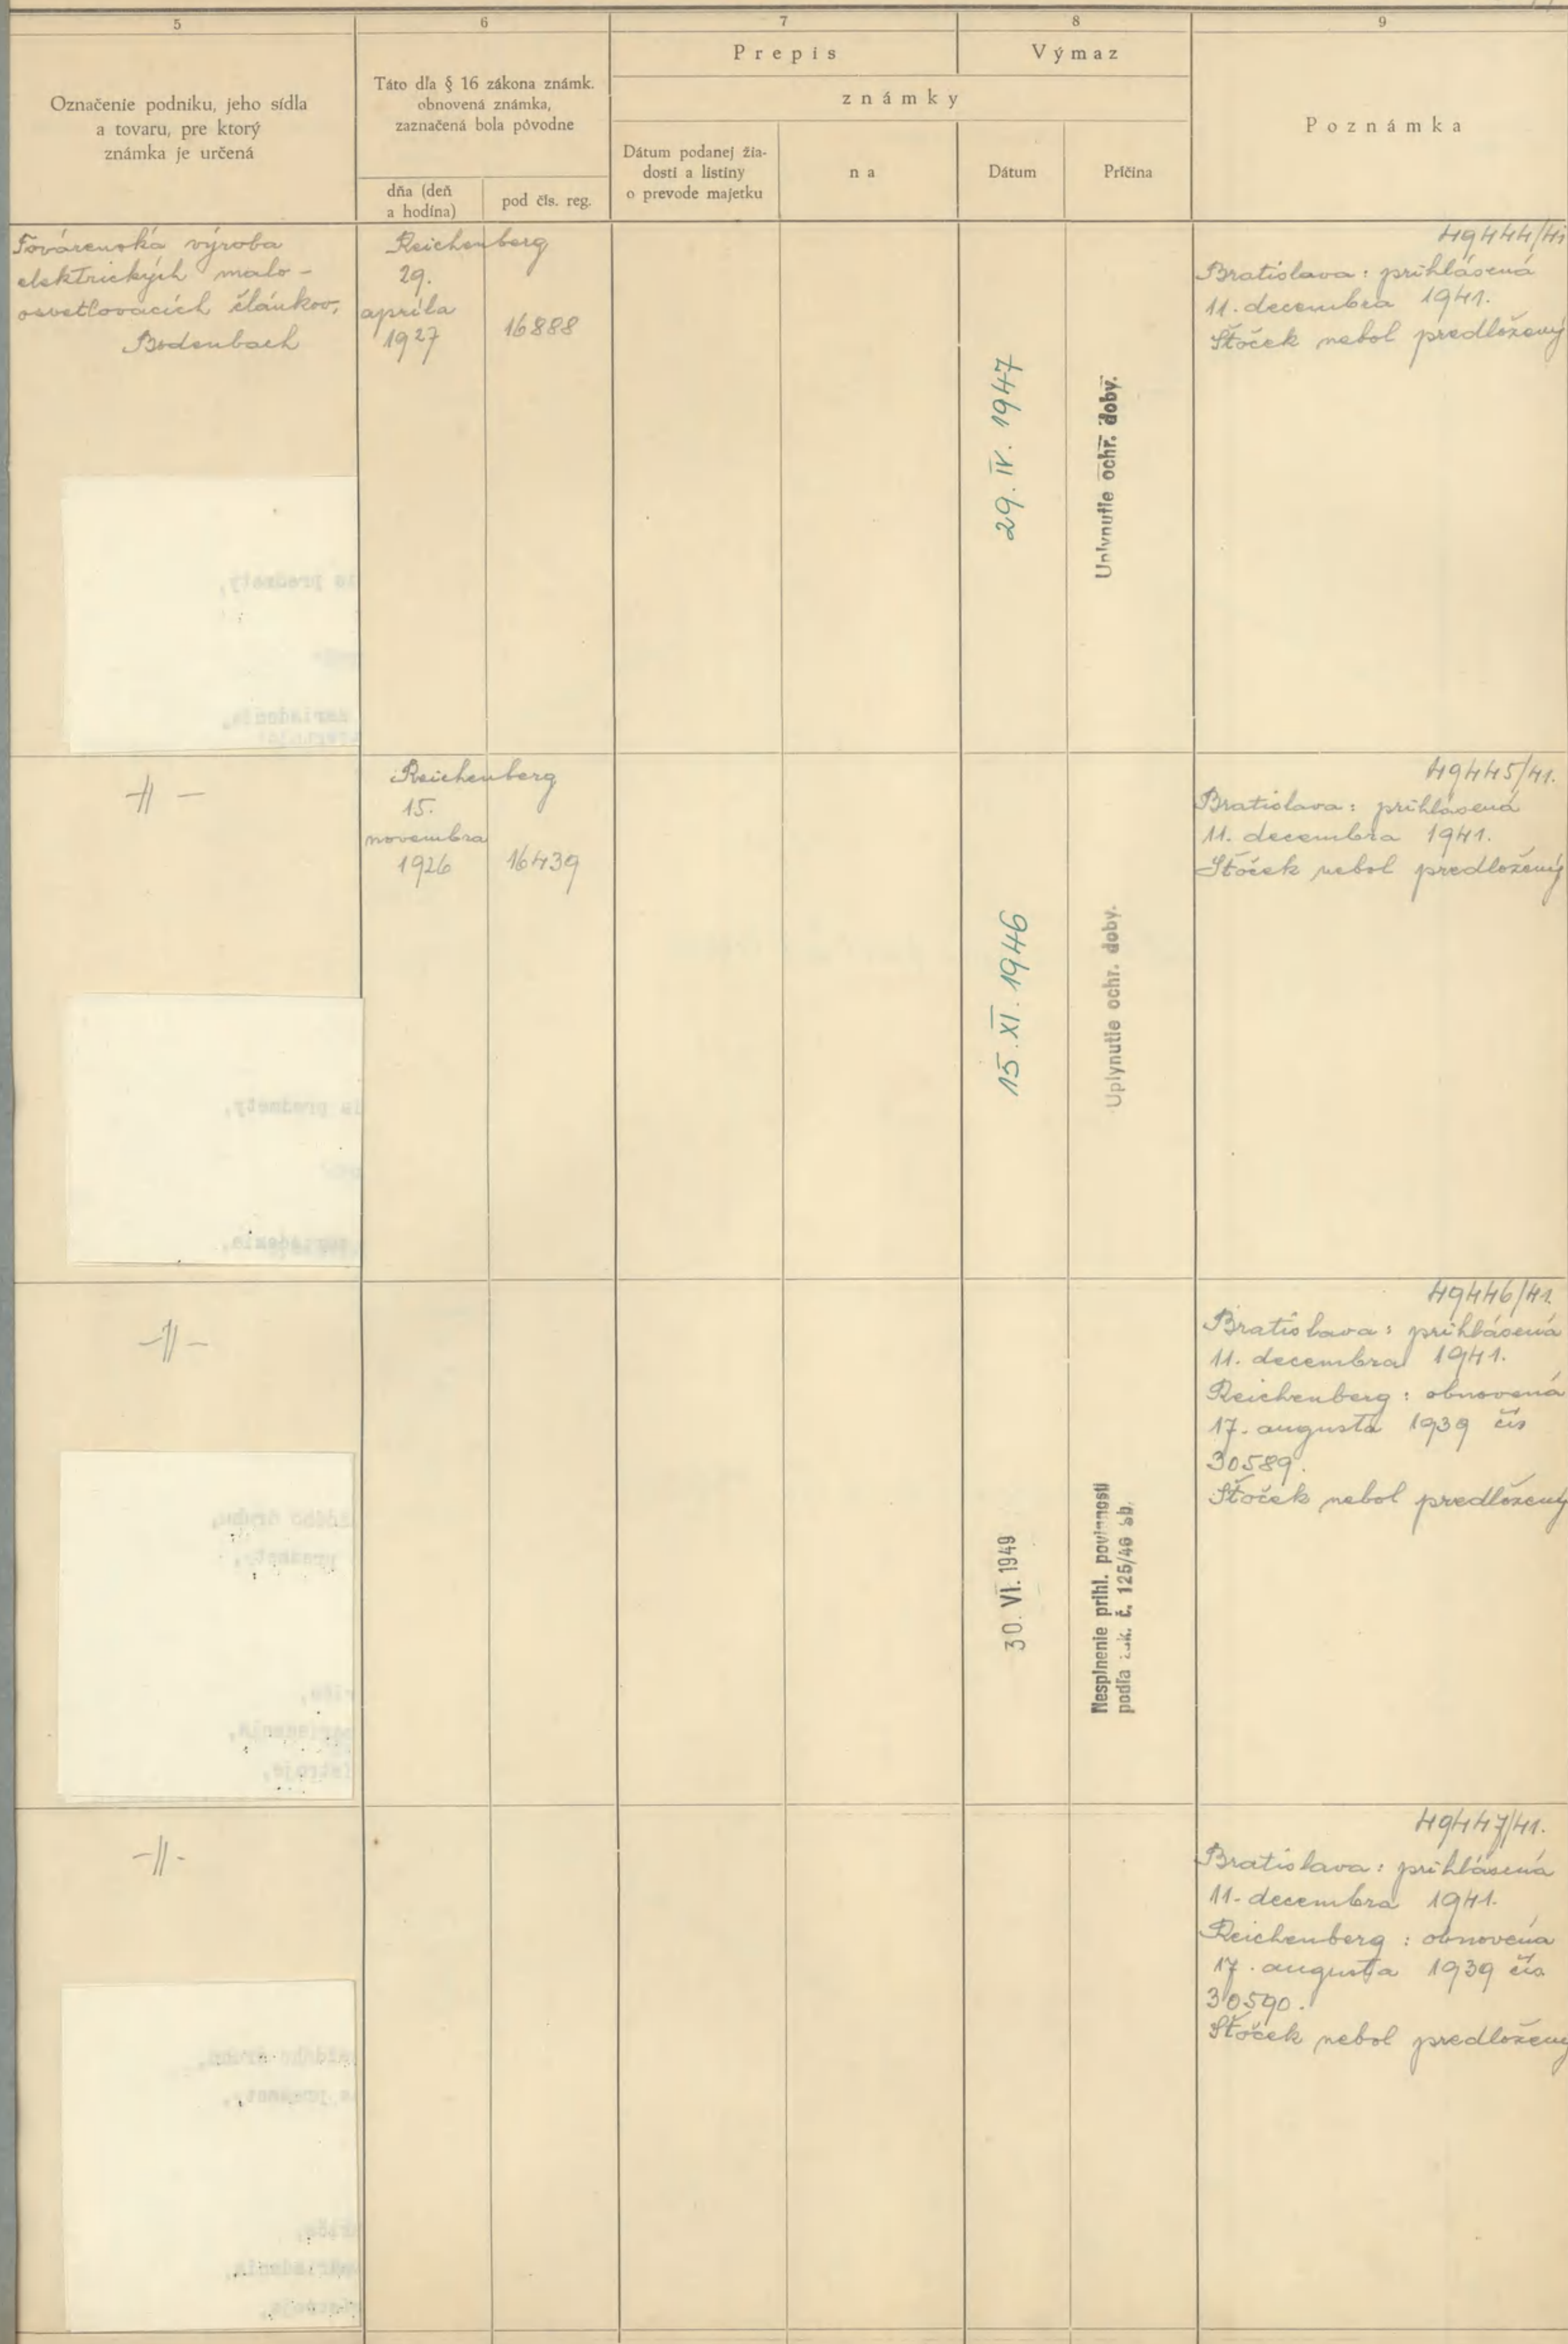 5
6
7
8
9
Označenie podniku, jeho sídla
a tovaru, pre ktorý
známka je určená
Táto dľa § 16 zákona známk.
obnovená známka,
zaznačená bola pôvodne
dňa (deň
a hodina)
pod čís. reg.
Prepis
Výmaz
známky
Dátum podanej žia-
dosti a listiny
o prevode majetku
na
Dátum
Príčina
Poznámka
Továrenská výroba
elektrických malo-
osvetlovacích článkov,
Bodenbach
Reichenberg
29.
apríla
1927
16888
29. IV. 1947
Uplynutie ochr. doby.
49444/41
Bratislava: prihlásená
11. decembra 1941.
Štoček nebol predložený
-||-
Reichenberg
15.
novembra
1926
16439
15. XI. 1946
Uplynutie ochr. doby.
49445/41.
Bratislava: prihlásená
11. decembra 1941.
Štoček nebol predložený
-||-
30. VI. 1949
Nesplnenie prihl. povinnosti
podľa zák. č. 125/46 sb.
49446/41.
Bratislava: prihlásená
11. decembra 1941.
Reichenberg: obnovená
17. augusta 1939 čís
30589.
Štoček nebol predložený
-||-
49447/41.
Bratislava: prihlásená
11. decembra 1941.
Reichenberg: obnovená
17. augusta 1939 čís
30590.
Štoček nebol predložený